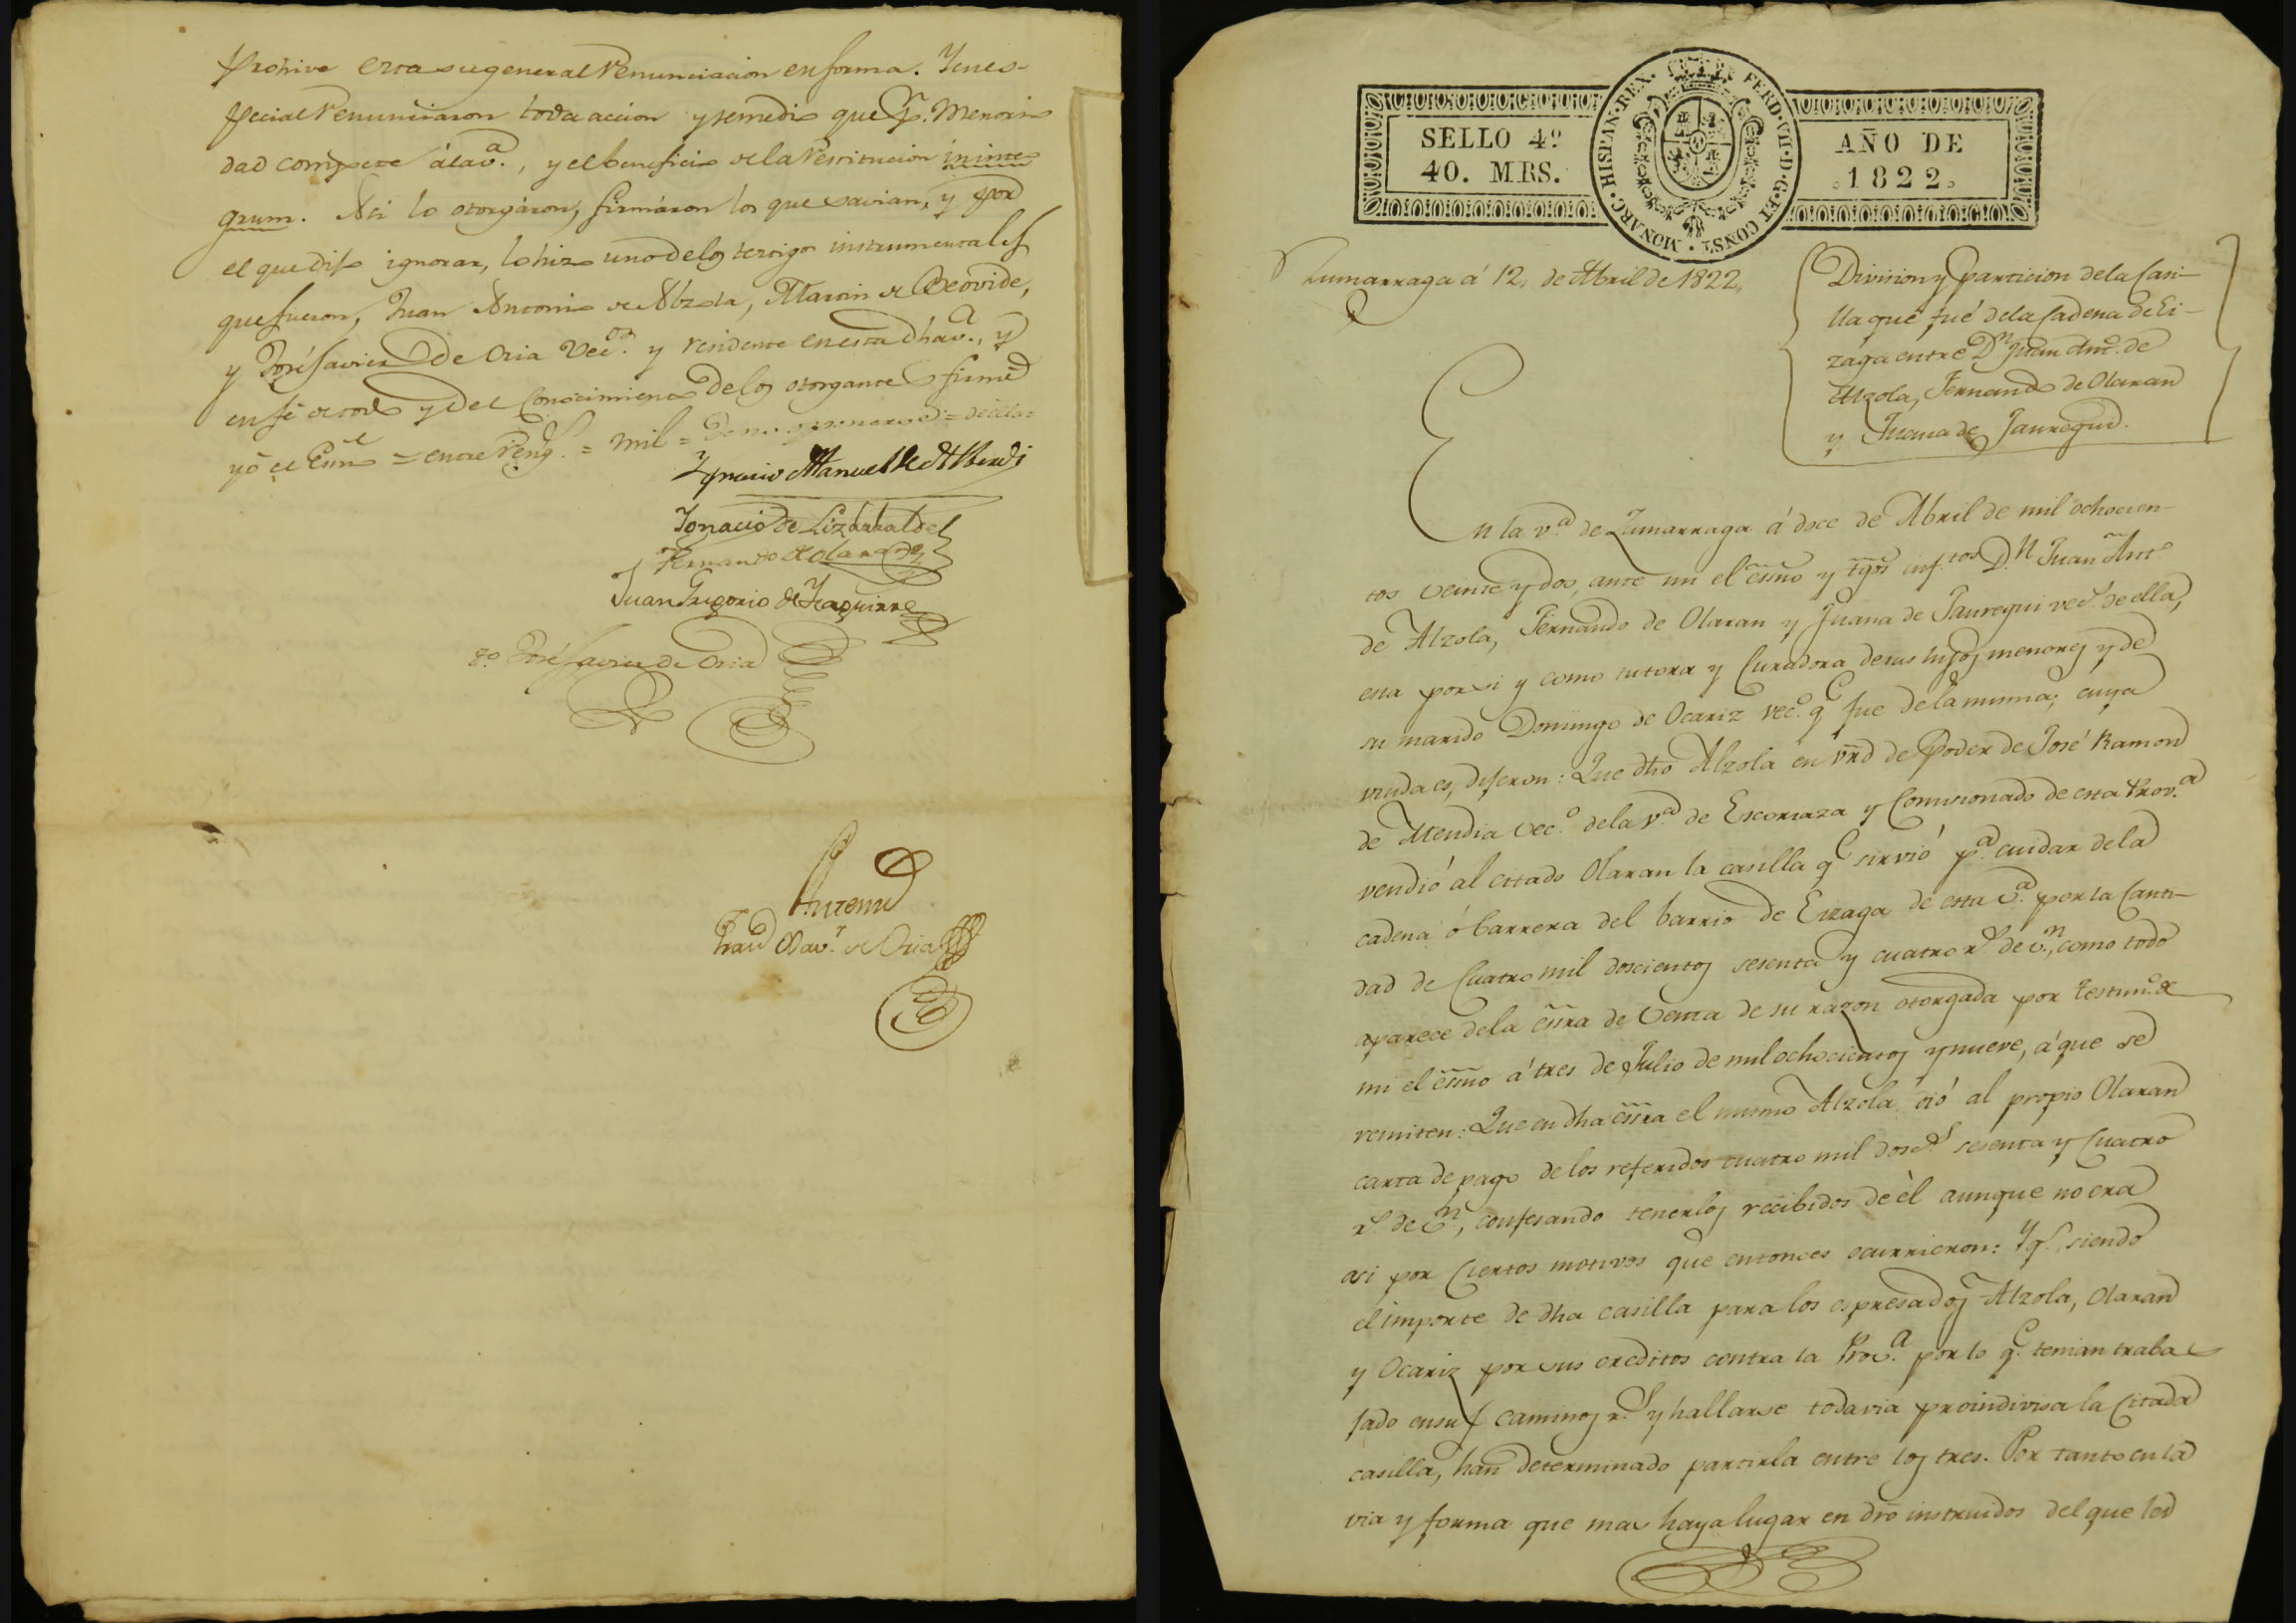 prohive esta su general renunciacion en forma. Y en es-
pecial renunciaron toda accion y remedio que p.r menori-
dad compete á la v.a, y el beneficio de la restitucion in inte
grum. Asi lo otorgáron, firmáron los que savian, y por
el que dijo ignorar, lo hizo uno de los testigos instrumentales
que fueron, Juan Antonio de Alzola, Martin de Beovide,
y José Savier de Oria Vec.os y residente en esta dha v.a, y
en fé de todo y del conocimiento de los otorgantes firmé
yó el Essno = entre reng.s = mil =
Ygnacio Manuel de Alberdi
Ignacio de Lizarralde
Fernando de Olaran
Juan Gregorio de Yzaguirre
t.o José Savier de Oria
Antemi
Fran.co Xav.r de Oria
SELLO 4º
40. MRS.
HISPAN·REX· FERD·VII·D·G·ET CONST·MONARC·
AÑO DE
1822
Zumarraga á 12, de Abril de 1822,
Division y particion de la Casi-
lla que fué de la Cadena de Ei-
zaga entre D.n Juan Ant.o de
Alzola, Fernando de Olaran
y Juana de Jauregui.
En la v.a de Zumarraga á doce de Abril de mil ochocien-
tos veinte y dos, ante mi el essno y tgos inf.tos D.n Juan Ant.o
de Alzola, Fernando de Olaran y Juana de Jauregui vec.s de ella,
esta por si y como tutora y Curadora de sus hijos menores y de
su marido Domingo de Ocariz vec.o q.e fue de la misma, cuya
viuda es, dijeron: Que dho Alzola en vrd de Poder de José Ramon
de Mendia vec.o de la v.a de Escoriaza y Comisionado de esta Prov.a
vendió al citado Olaran la casilla q.e sirvió p.a cuidar de la
cadena ó barrera del barrio de Eizaga de esta v.a por la Canti-
dad de Cuatro mil doscientos sesenta y cuatro r.s de v.n, como todo
aparece de la essra de Venta de su razon otorgada por testim.o de
mi el essno á tres de Julio de mil ochocientos y nueve, á que se
remiten: Que en dha essra el mismo Alzola dió al propio Olaran
carta de pago de los referidos cuatro mil dosc.s sesenta y Cuatro
r.s de v.n, confesando tenerlos recibidos de èl aunque no era
asi por Ciertos motivos que entonces ocurrieron: Y q.e siendo
el importe de dha casilla para los espresados Alzola, Olaran
y Ocariz por sus creditos contra la Prov.a por lo q.e tenian traba-
jado en sus caminos r.s y hallarse todavia proindivisa la Citada
casilla, han determinado partirla entre los tres. Por tanto en la
via y forma que mas haya lugar en dro instruidos del que les